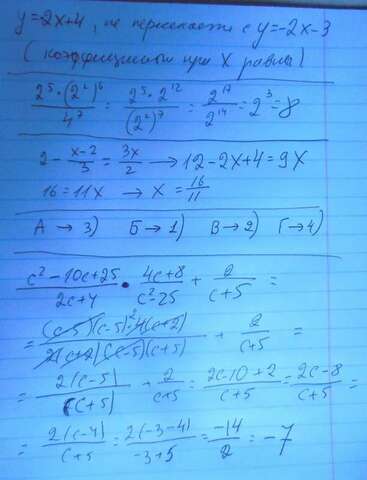 y=2x+4, не пересекается с y=-2x-3
(коэффициенты при X равны)
2⁵·(2²)⁶/4⁷ = 2⁵·2¹²/(2²)⁷ = 2¹⁷/2¹⁴ = 2³ = 8
2 - (x-2)/3 = 3x/2 → 12-2x+4=9x
16=11x → x = 16/11
А → 3) Б → 1) В → 2) Г → 4)
(c²-10c+25)/(2c+4) · (4c+8)/(c²-25) + 2/(c+5) =
= (c-5)(c-5)·4(c+2)/2(c+2)(c-5)(c+5) + 2/(c+5) =
= 2(c-5)/(c+5) + 2/(c+5) = (2c-10+2)/(c+5) = (2c-8)/(c+5) =
= 2(c-4)/(c+5) = 2(-3-4)/(-3+5) = -14/2 = -7